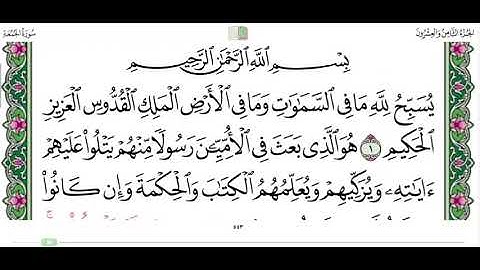 الجُزْءُ الثَّامِنُ وَالعِشْرُونَ
سُورَةُ الجُمُعَةِ
بِسْمِ ٱللَّهِ ٱلرَّحْمَٰنِ ٱلرَّحِيمِ
يُسَبِّحُ لِلَّهِ مَا فِي ٱلسَّمَٰوَٰتِ وَمَا فِي ٱلْأَرْضِ ٱلْمَلِكِ ٱلْقُدُّوسِ ٱلْعَزِيزِ
ٱلْحَكِيمِ ١ هُوَ ٱلَّذِي بَعَثَ فِي ٱلْأُمِّيِّۦنَ رَسُولًا مِّنْهُمْ يَتْلُوا۟ عَلَيْهِمْ
ءَايَٰتِهِۦ وَيُزَكِّيهِمْ وَيُعَلِّمُهُمُ ٱلْكِتَٰبَ وَٱلْحِكْمَةَ وَإِن كَانُوا۟
٥٥٣